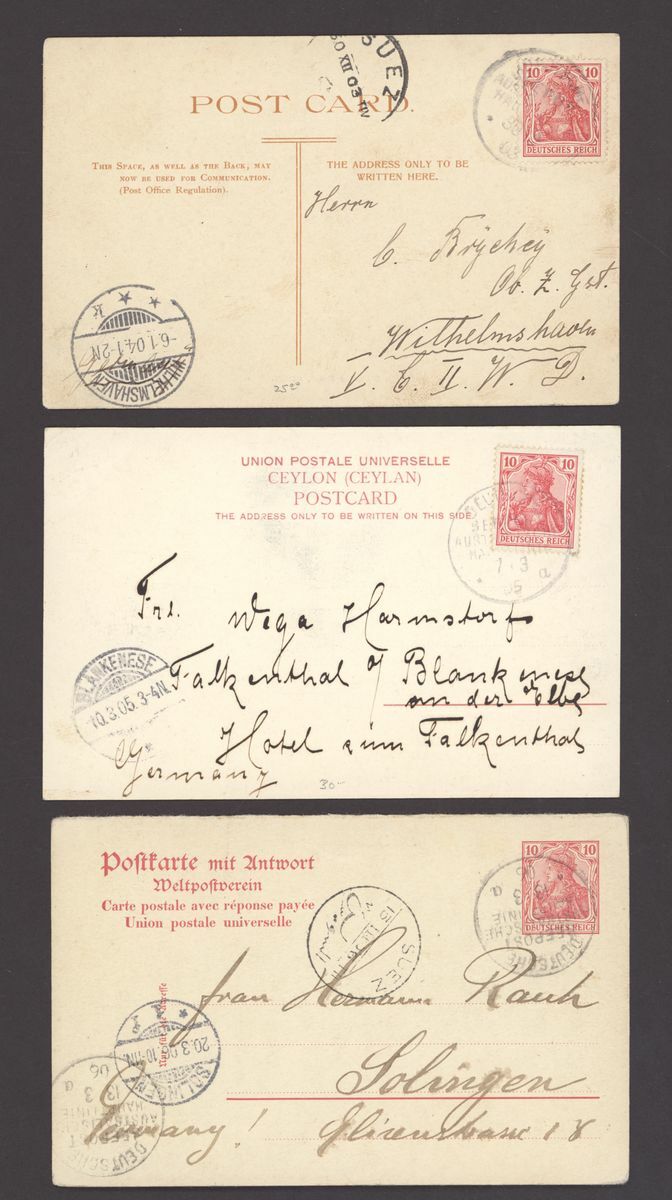 SUEZ
30 XII 03
POST CARD.
10 10
DEUTSCHES REICH
THIS SPACE, AS WELL AS THE BACK, MAY
NOW BE USED FOR COMMUNICATION.
(Post Office Regulation).
THE ADDRESS ONLY TO BE
WRITTEN HERE.
Herrn
C.
Ob. Z. Gst.
Wilhelmshaven
V. C. II. W. D.
WILHELMSHAVEN
-6.1.04.1-2N
k
25--
UNION POSTALE UNIVERSELLE
CEYLON (CEYLAN)
POSTCARD
THE ADDRESS ONLY TO BE WRITTEN ON THIS SIDE
10 10
DEUTSCHES REICH
05 a
Frl. Wega Harmstorf
Falkenthal o/ Blankenese
an der Elbe
Hotel zum Falkenthal
Germany
BLANKENESE
10.3.05.3-4N.
30-
Postkarte mit Antwort
Weltpostverein
Carte postale avec réponse payée
Union postale universelle
10 10
DEUTSCHES REICH
DEUTSCHE
SEEPOST
LINIE
a
SUEZ
Frau Hermann Rauh
Solingen
Germany!
SOLINGEN
20.3.06.10-11N.
DEUTSCHE
SEEPOST
LINIE
13 3
06
a